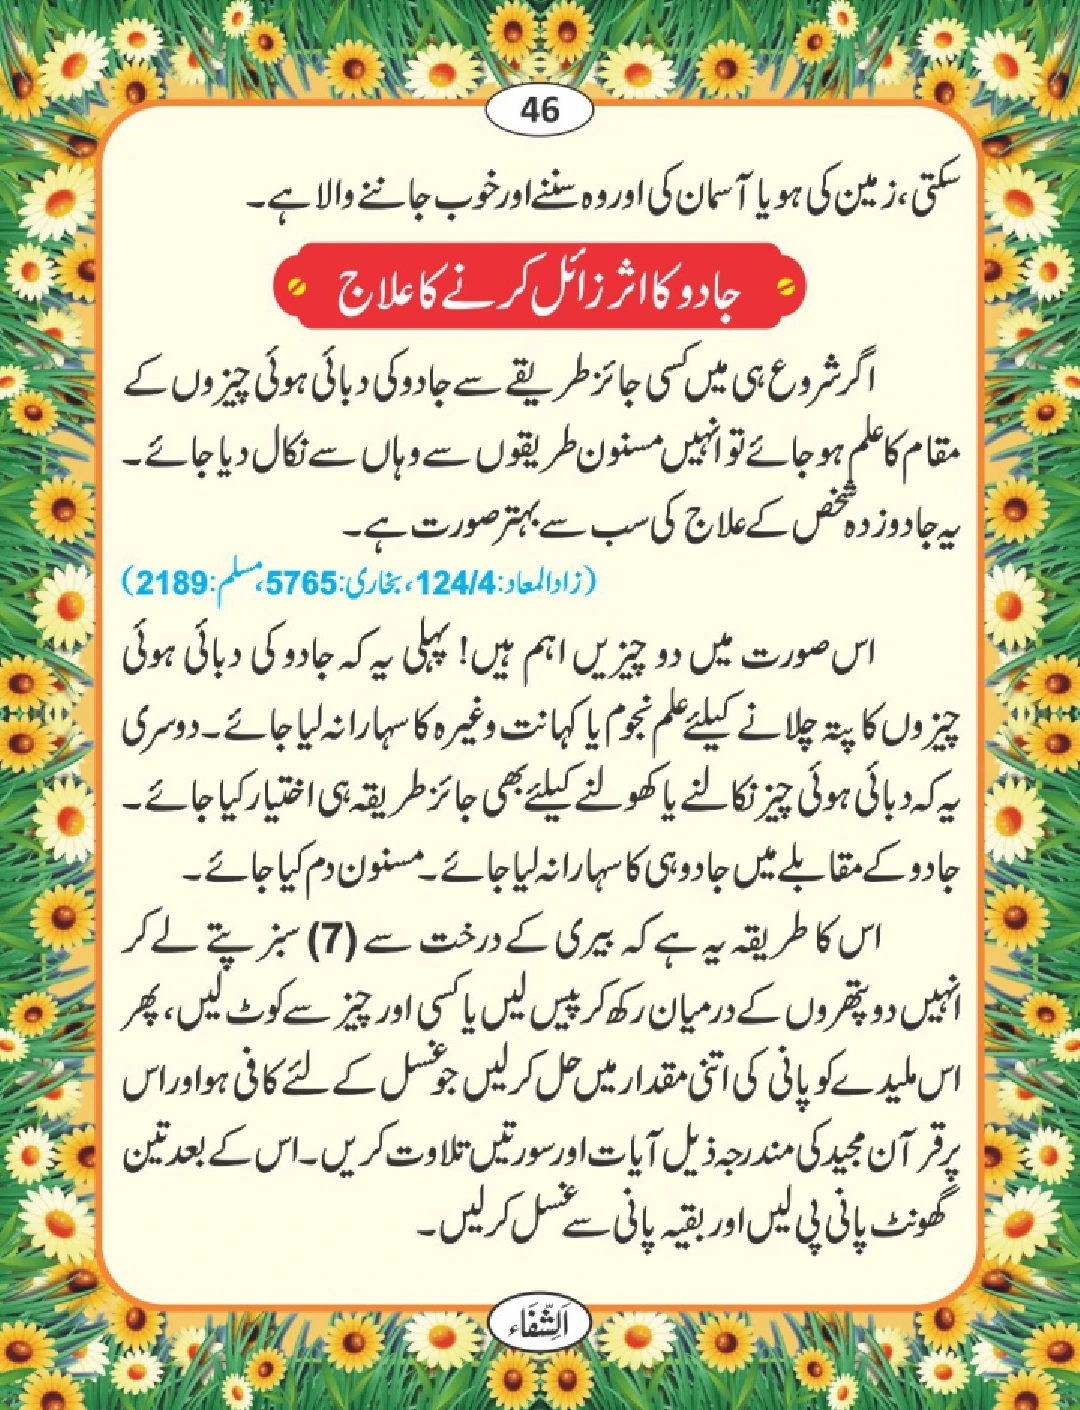 46
سکتی، زمین کی ہو یا آسمان کی اور وہ سننے اور خوب جاننے والا ہے۔
جادو کا اثر زائل کرنے کا علاج
اگر شروع ہی میں کسی جائز طریقے سے جادو کی دبائی ہوئی چیزوں کے
مقام کا علم ہو جائے تو انہیں مسنون طریقوں سے وہاں سے نکال دیا جائے۔
یہ جادو زدہ شخص کے علاج کی سب سے بہتر صورت ہے۔
(زاد المعاد: 124/4، بخاری: 5765، مسلم: 2189)
اس صورت میں دو چیزیں اہم ہیں! پہلی یہ کہ جادو کی دبائی ہوئی
چیزوں کا پتہ چلانے کیلئے علم نجوم یا کہانت وغیرہ کا سہارا نہ لیا جائے۔ دوسری
یہ کہ دبائی ہوئی چیز نکالنے یا کھولنے کیلئے بھی جائز طریقہ ہی اختیار کیا جائے۔
جادو کے مقابلے میں جادو ہی کا سہارا نہ لیا جائے۔ مسنون دم کیا جائے۔
اس کا طریقہ یہ ہے کہ بیری کے درخت سے (7) سبز پتے لے کر
انہیں دو پتھروں کے درمیان رکھ کر پیس لیں یا کسی اور چیز سے کوٹ لیں، پھر
اس ملیدے کو پانی کی اتنی مقدار میں حل کر لیں جو غسل کے لئے کافی ہو اور اس
پر قرآن مجید کی مندرجہ ذیل آیات اور سورتیں تلاوت کریں۔ اس کے بعد تین
گھونٹ پانی پی لیں اور بقیہ پانی سے غسل کر لیں۔
اَلشِّفَاء